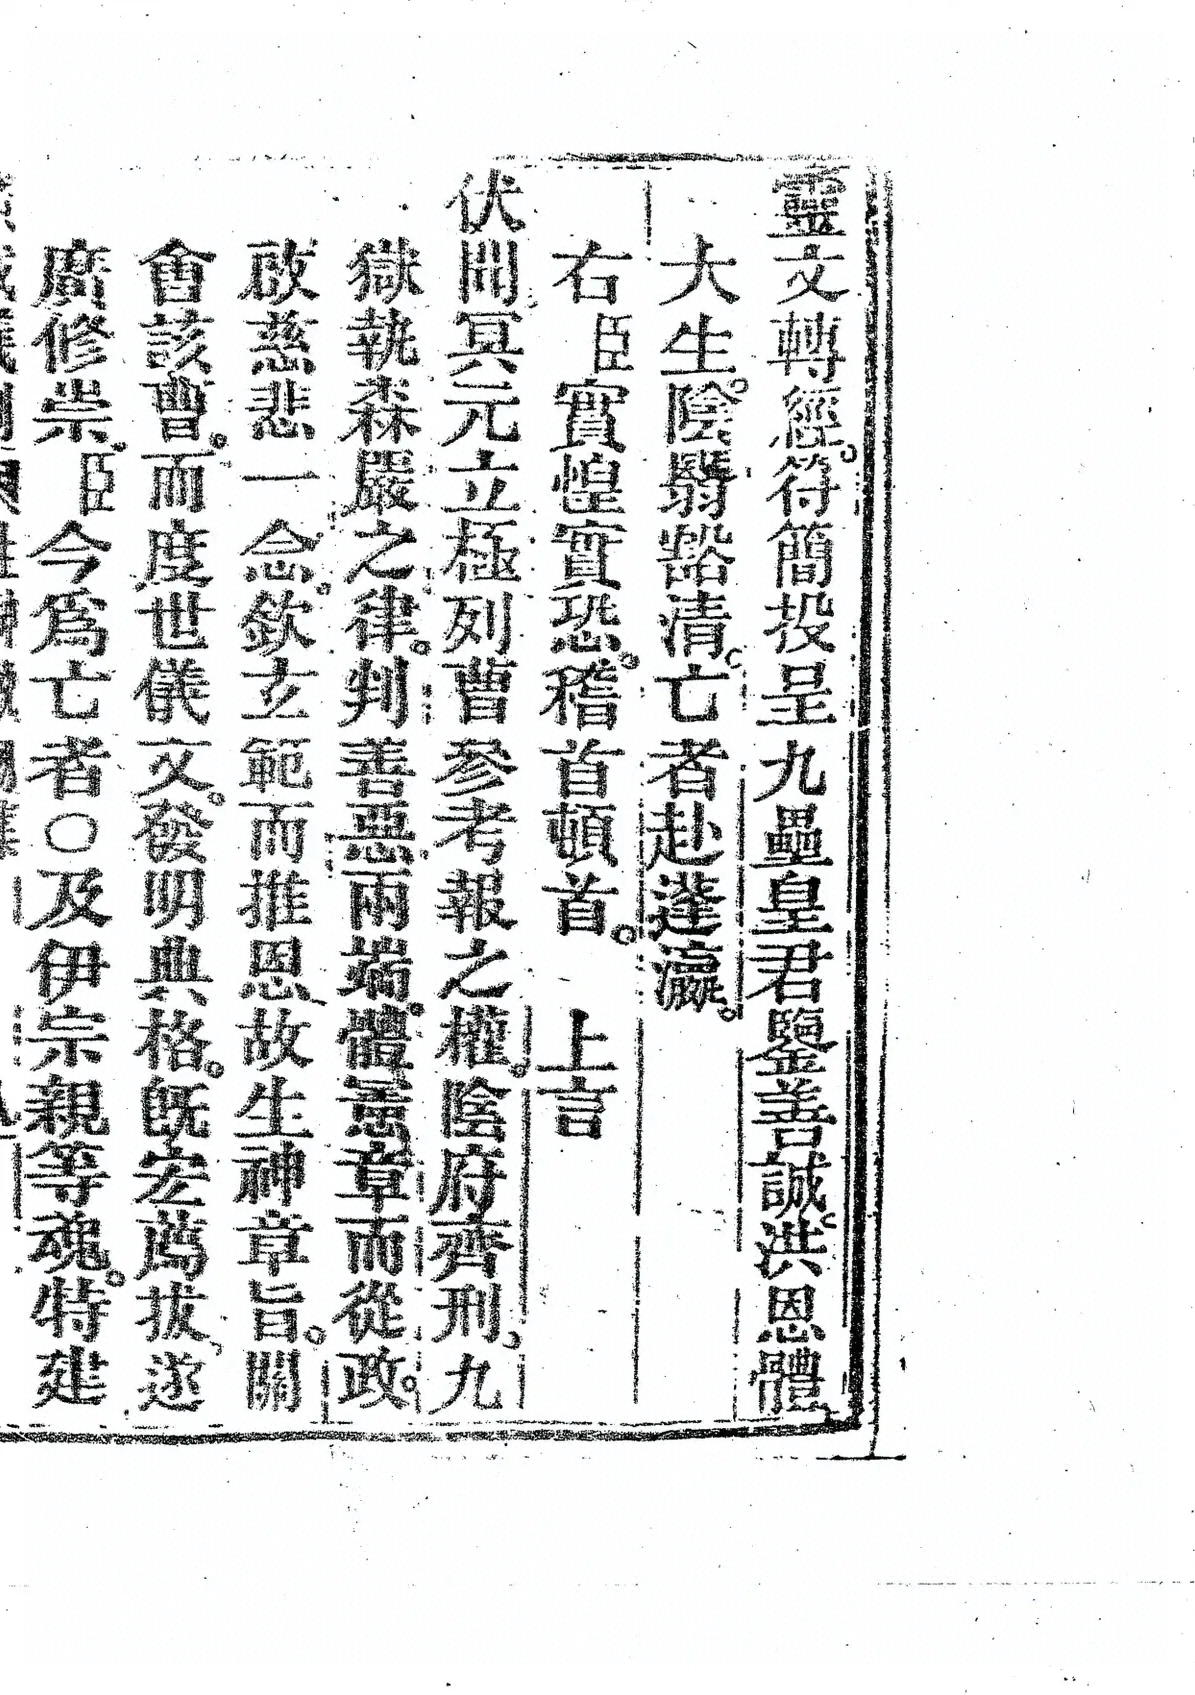 靈文轉經。符簡投呈九壘皇君鑒善誠。洪恩體
大生。陰翳豁清。亡者赴蓬瀛。
右臣實惶實恐。稽首頓首。上言
伏聞冥元立極列曹參考報之權。陰府齊刑。九
獄執森嚴之律。判善惡兩端。體意章而從政。
啟慈悲一念。欽玄範而推恩。故生神章旨。關
會該曹。而度世儀文。發明典格。既宏薦拔。遂
廣修崇。臣今爲亡者○及伊宗親等魂。特建